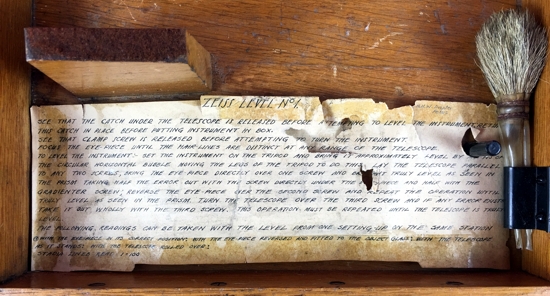 ZEISS LEVEL No 1.
SEE THAT THE CATCH UNDER THE TELESCOPE IS RELEASED BEFORE ATTEMPTING TO LEVEL THE INSTRUMENT.
THIS CATCH IN PLACE BEFORE PUTTING INSTRUMENT IN BOX.
SEE THAT CLAMP SCREW IS RELEASED BEFORE ATTEMPTING TO TURN THE INSTRUMENT.
FOCUS THE EYE-PIECE UNTIL THE HAIR-LINES ARE DISTINCT AT ANY RANGE OF THE TELESCOPE.
TO LEVEL THE INSTRUMENT:- SET THE INSTRUMENT ON THE TRIPOD AND BRING IT APPROXIMATELY LEVEL BY
THE CIRCULAR HORIZONTAL BUBBLE, MOVING THE LEGS OF THE TRIPOD TO LAY THE TELESCOPE PARALLEL
TO ANY TWO SCREWS, BRING THE EYE PIECE DIRECTLY OVER ONE SCREW AND TRULY LEVEL AS SEEN IN
THE PRISM TAKING HALF THE ERROR OUT WITH THE SCREW DIRECTLY UNDER THE AND HALF WITH THE
GRADIENTER SCREW, REVERSE THE EYE PIECE OVER THE SECOND SCREW AND REPEAT THE OPERATION UNTIL
TRULY LEVEL AS SEEN IN THE PRISM. TURN THE TELESCOPE OVER THE THIRD SCREW AND IF ANY ERROR
TAKE IT OUT WHOLLY WITH THE THIRD SCREW. THIS OPERATION MUST BE REPEATED UNTIL THE TELESCOPE IS
LEVEL
THE FOLLOWING READINGS CAN BE TAKEN WITH THE LEVEL FROM ONE SETTING UP ON THE SAME STATION
WITH THE IN ITS CORRECT POSITION, WITH THE EYE PIECE REVERSED AND FITTED TO THE OBJECT GLASS, WITH THE TELESCOPE
WITH THE TELESCOPE ROLLED OVER.
STADIA LINES READ 1=100.